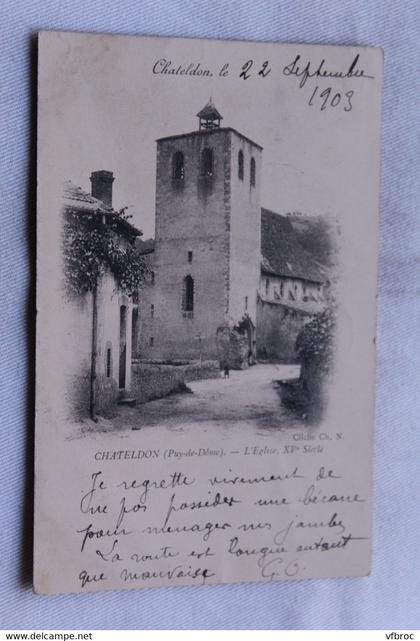 Chateldon, le 22 Septembre
1903
Cliché Ch. N.
CHATELDON (Puy-de-Dôme). — L'Eglise, XVe Siècle
Je regrette vivement de
ne pas posséder une bécane
pour ménager mes jambes
La route est longue autant
que mauvaise
G.O.
© www.delcampe.net
vfbroc